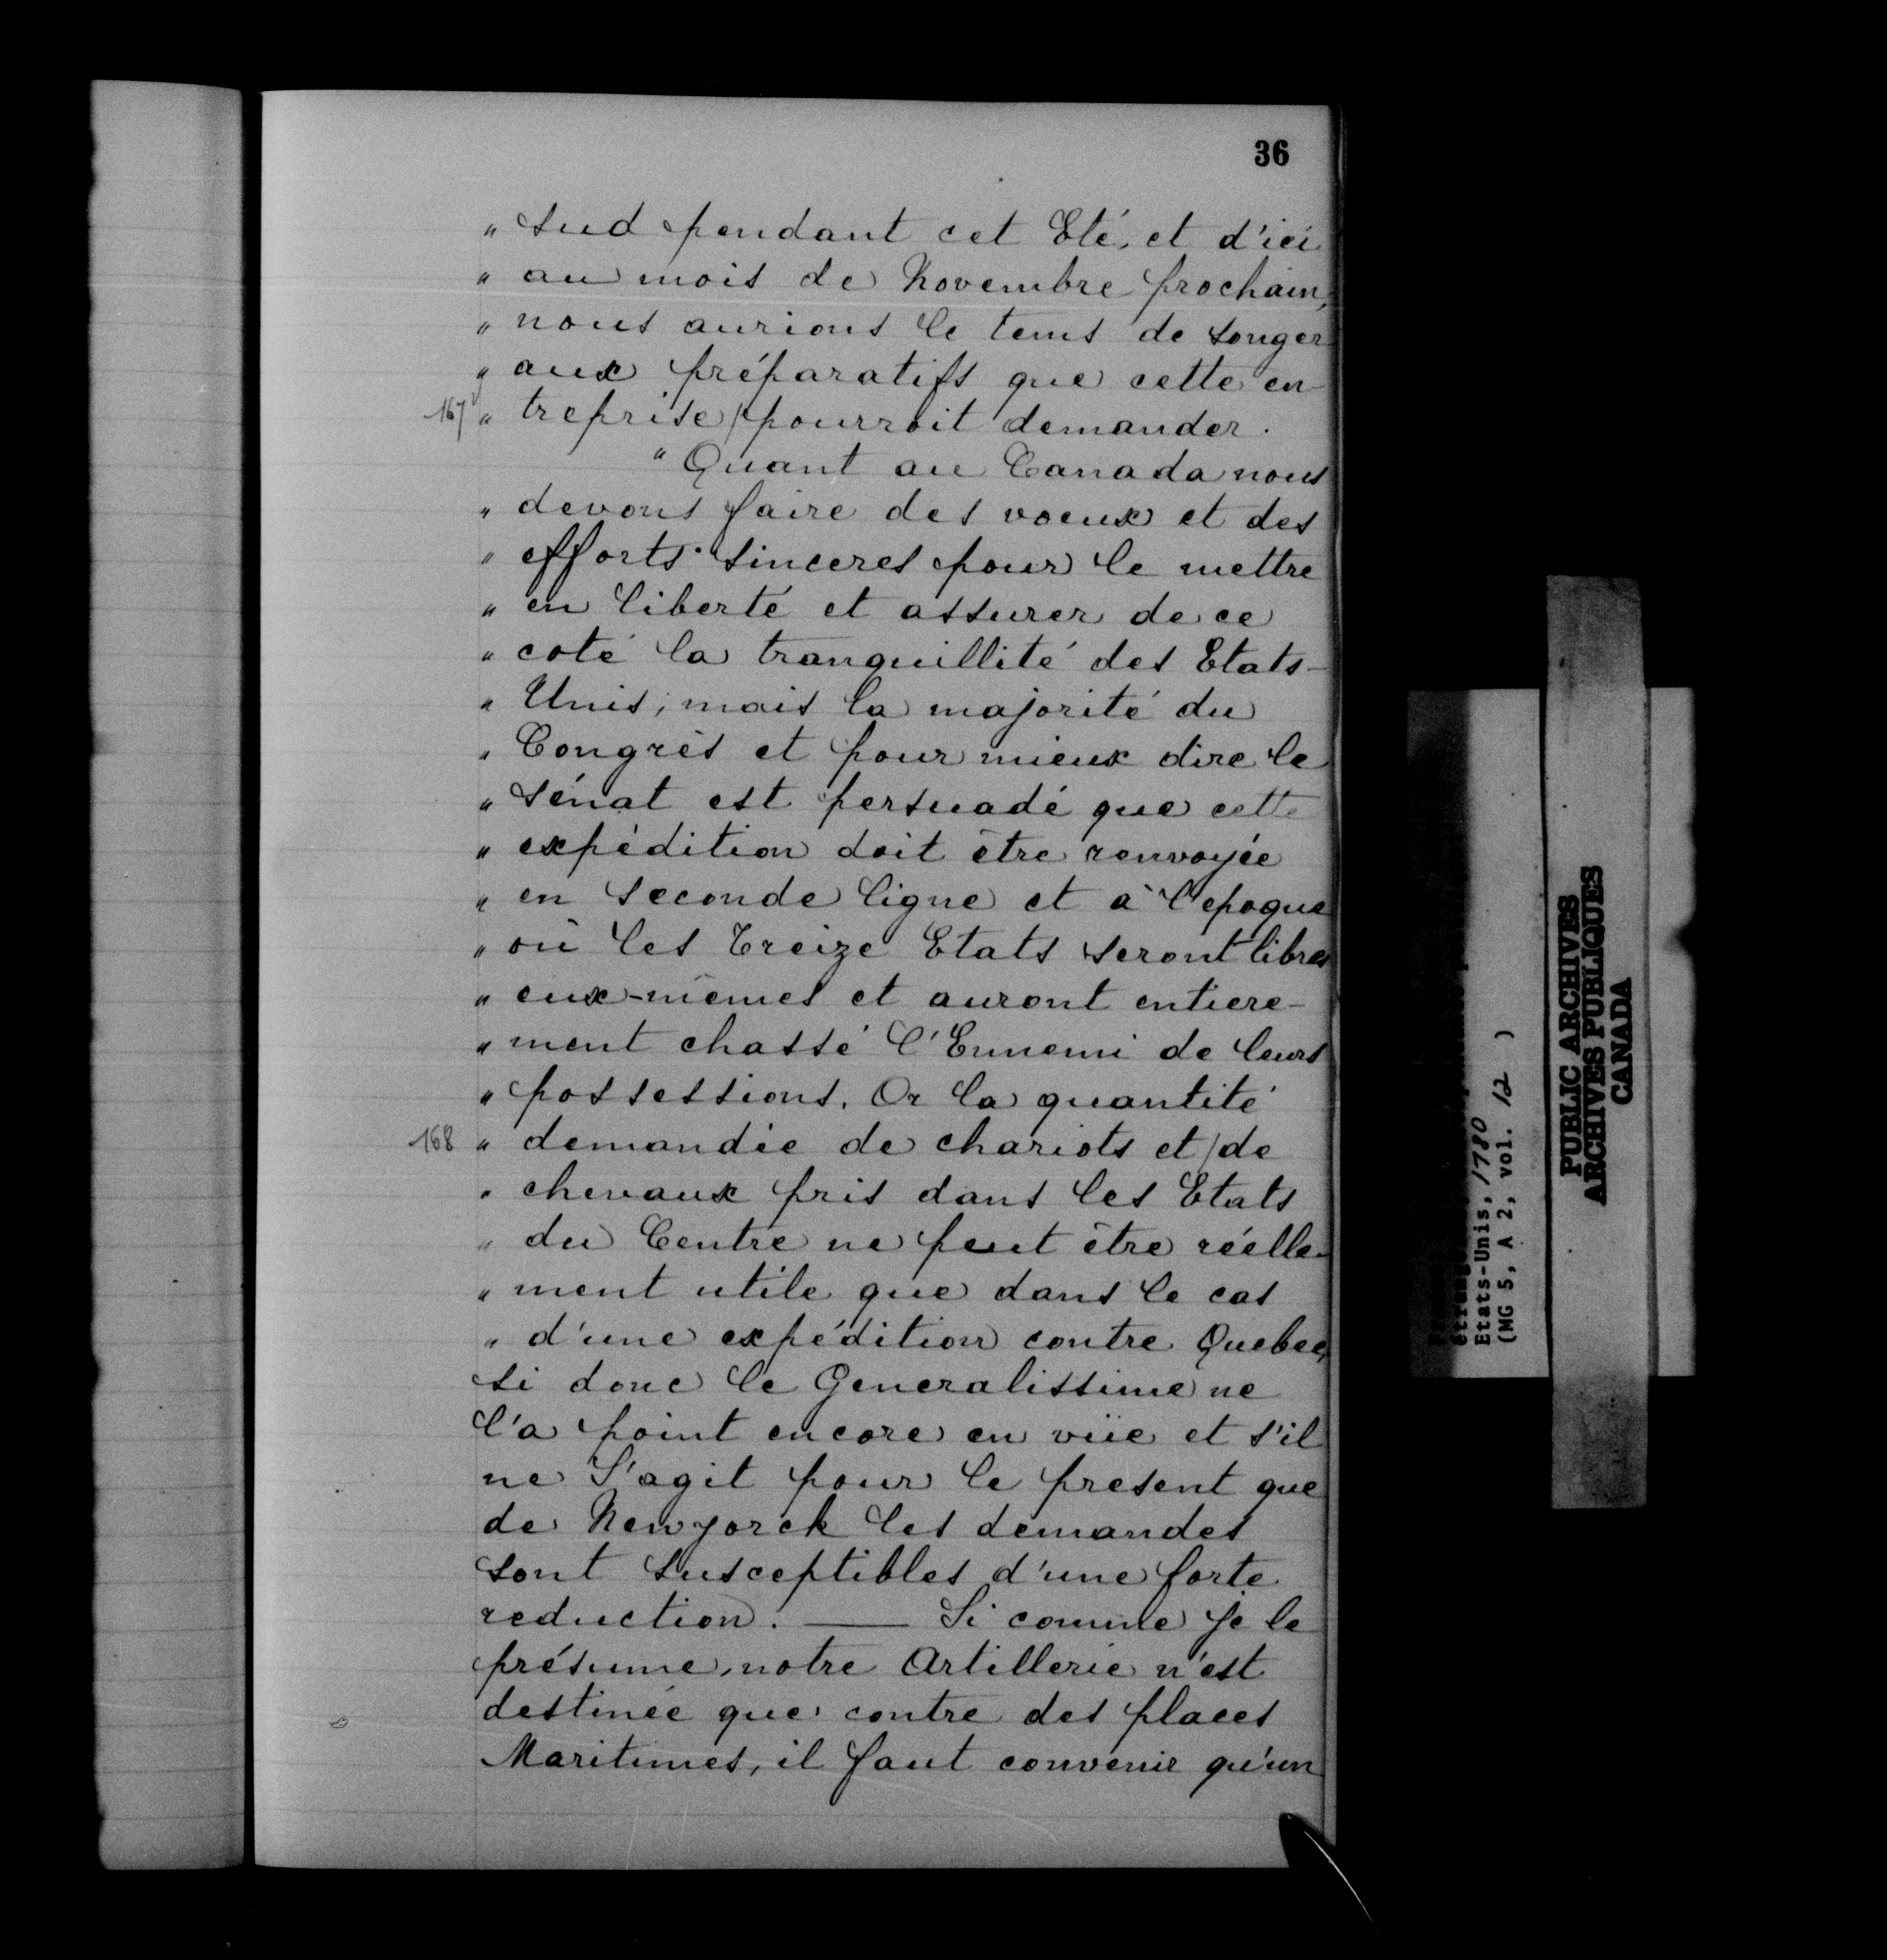 36
" Sud pendant cet Eté, et d'ici
" au mois de Novembre prochain,
" nous aurions le tems de songer
" aux préparatifs que cette en-
167 " treprise / pourroit demander.
" Quant au Canada nous
" devons faire des voeux et des
" efforts sinceres pour le mettre
" en liberté et assurer de ce
" coté la tranquillité des Etats-
" Unis; mais la majorité du
" Congrès et pour mieux dire le
" Sénat est persuadé que cette
" expédition doit être renvoyée
" en seconde ligne et à l'epoque
" où les Treize Etats seront libres
" eux-mêmes et auront entiere-
" ment chassé l'Ennemi de leurs
" possessions. Or la quantité
168 " demandée de chariots et / de
" chevaux pris dans les Etats
" du Centre ne peut être réelle-
" ment utile que dans le cas
" d'une expédition contre Quebec,
si donc le Generalissime ne
l'a point encore en vüe et s'il
ne s'agit pour le present que
de Newyorck les demandes
sont susceptibles d'une forte
reduction. — Si comme je le
présume, notre Artillerie n'est
destinée que contre des places
Maritimes, il faut convenir qu'un
Etats-Unis, 1780
(MG 5, A 2, vol. 12 )
PUBLIC ARCHIVES
ARCHIVES PUBLIQUES
CANADA